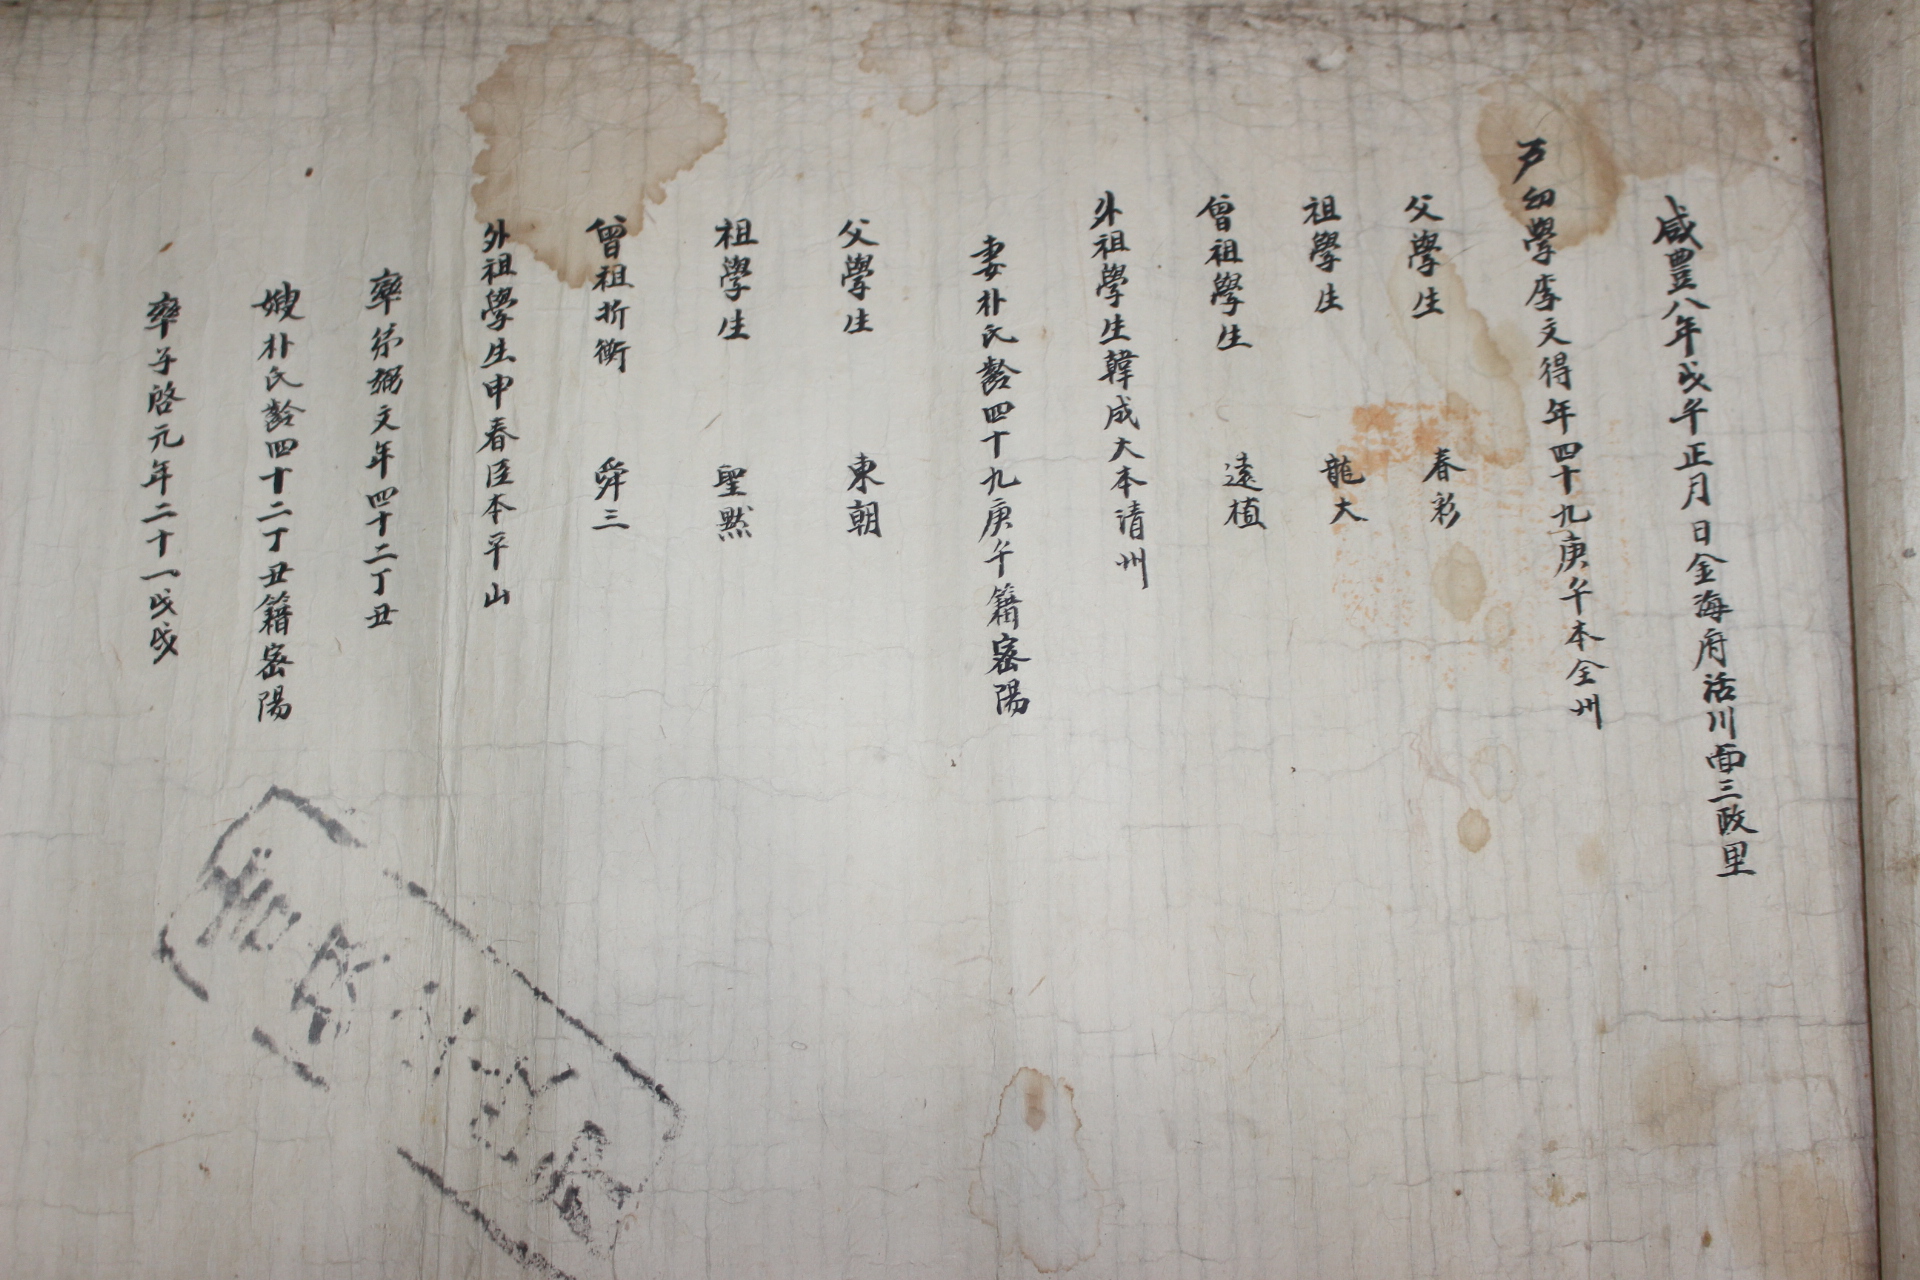 咸豐八年戊午正月日金海府活川面三政里
戶幼學李文得年四十九庚午本全州
父學生 春彩
祖學生 龍大
曾祖學生 遠植
外祖學生韓成大本清州
妻朴氏齡四十九庚午籍密陽
父學生 東朝
祖學生 聖默
曾祖折衝 舜三
外祖學生申春臣本平山
率弟弼文年四十二丁丑
嫂朴氏齡四十二丁丑籍密陽
率子啓元年二十一戊戌